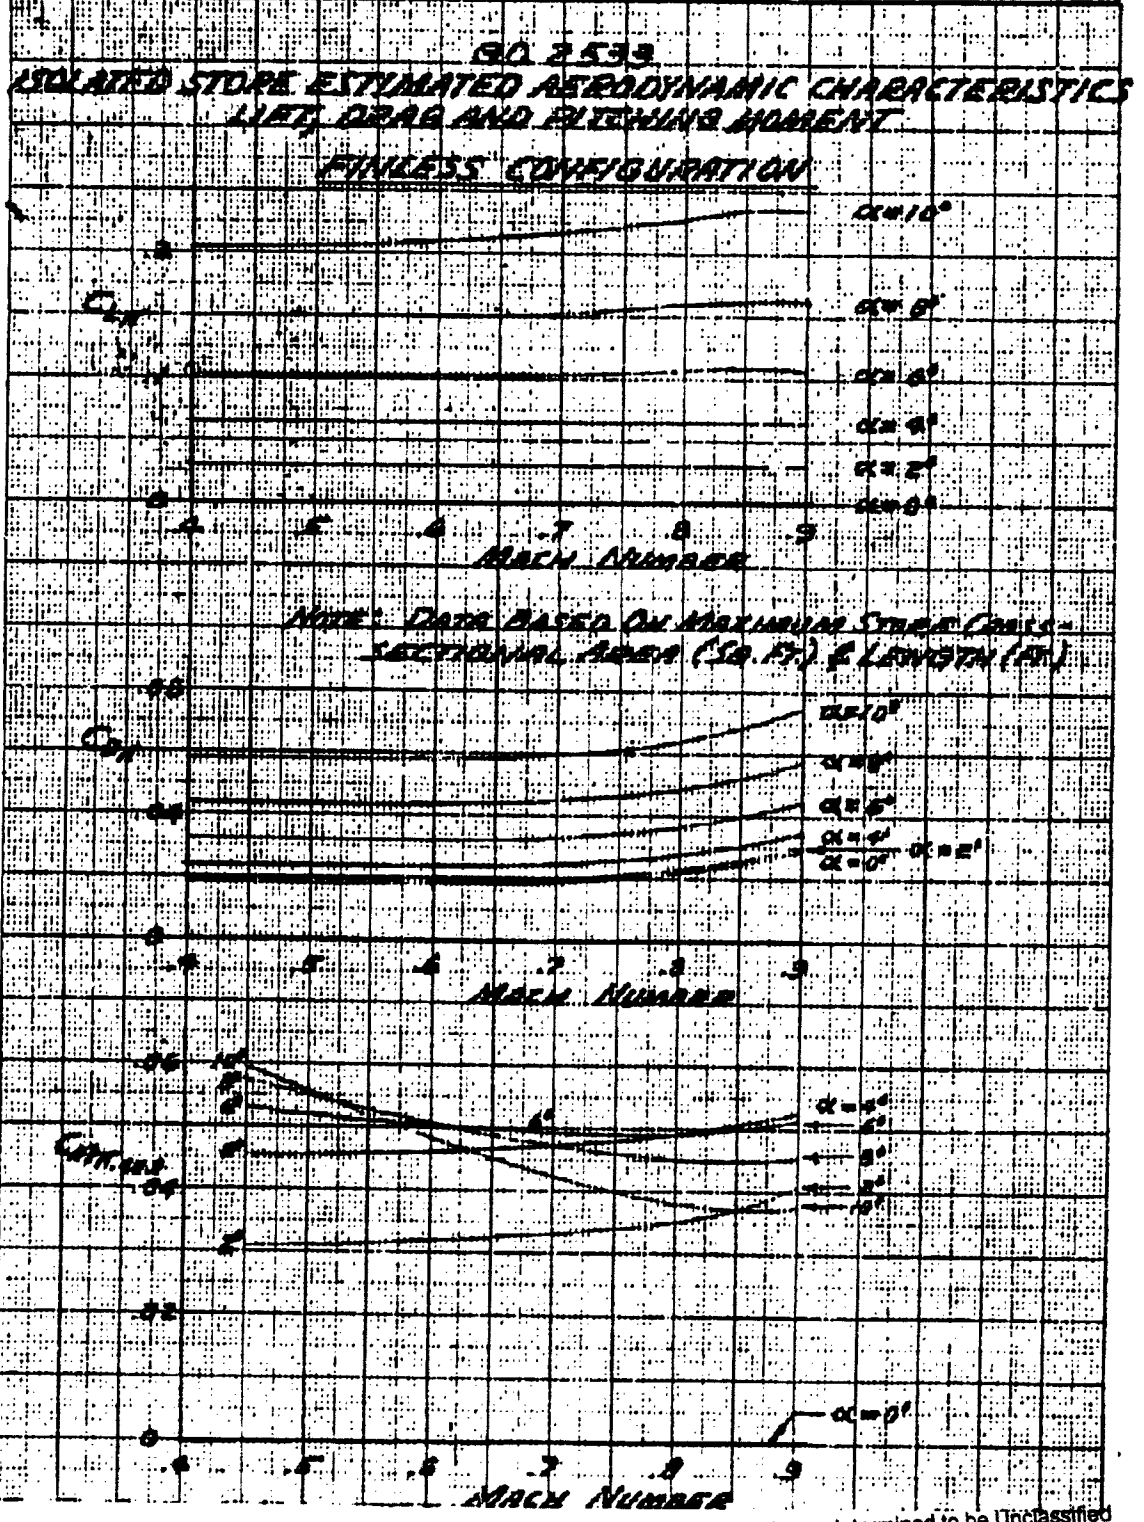 ISOLATED STORE ESTIMATED AERODYNAMIC CHARACTERISTICS
LIFT, DRAG AND PITCHING MOMENT
FINLESS CONFIGURATION
α=10°
.2
α=8°
α=6°
α=4°
α=2°
0
α=0°
.4 .5 .6 .7 .8 .9
MACH NUMBER
NOTE: DATA BASED ON MAXIMUM STORE CROSS-
SECTIONAL AREA (SQ. FT.) & LENGTH (FT.)
α=10°
α=8°
.04
α=6°
α=4°
α=2°
α=0°
0
.4 .5 .6 .7 .8 .9
MACH NUMBER
.06 10°
8°
6°
6°
α=4°
6°
4°
8°
.04
2°
10°
2°
.02
α=0°
0
.4 .5 .6 .7 .8 .9
MACH NUMBER
to be Unclassified